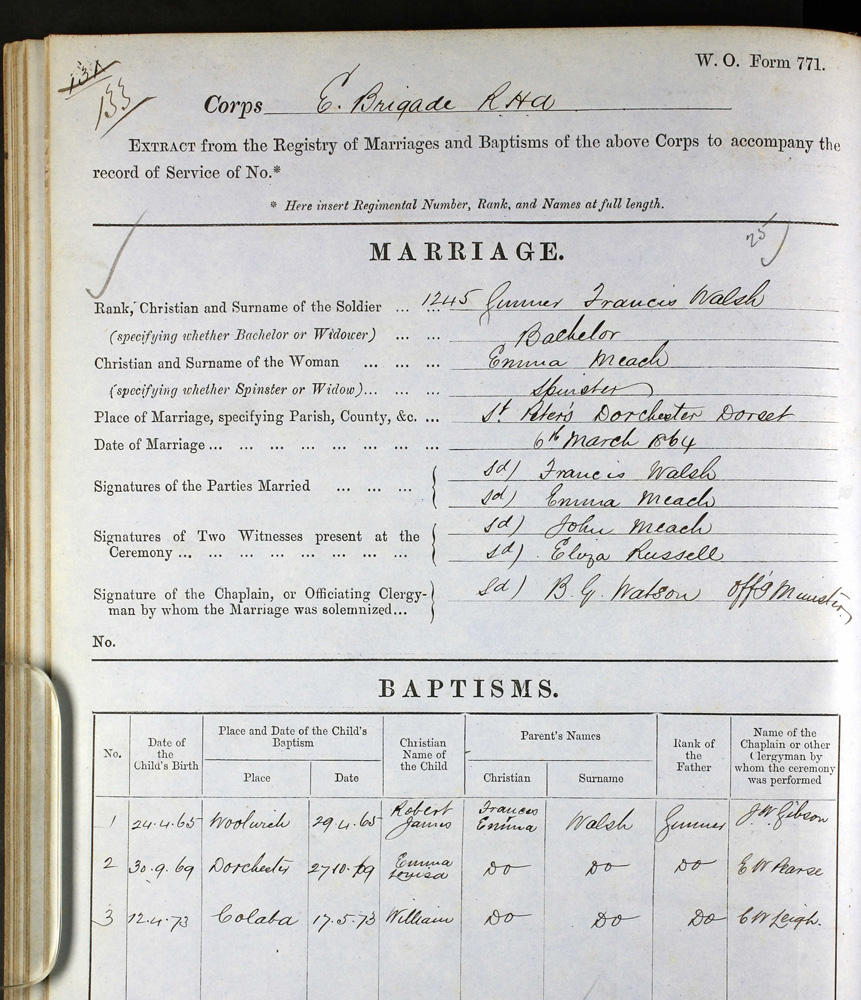 W. O. Form 771.
131
133
Corps E. Brigade R.H.A
EXTRACT from the Registry of Marriages and Baptisms of the above Corps to accompany the
record of Service of No.*
* Here insert Regimental Number, Rank, and Names at full length.
25
MARRIAGE.
Rank, Christian and Surname of the Soldier ... ... 1245 Gunner Francis Walsh
(specifying whether Bachelor or Widower) ... ... Bachelor
Christian and Surname of the Woman ... ... ... Emma Meach
(specifying whether Spinster or Widow)... ... ... Spinster
Place of Marriage, specifying Parish, County, &c. ... St. Peter's Dorchester Dorset
Date of Marriage ... ... ... ... ... ... ... ... ... 6th March 1864
Signatures of the Parties Married ... ... ... sd) Francis Walsh
sd) Emma Meach
Signatures of Two Witnesses present at the sd) John Meach
Ceremony ... ... ... ... ... ... ... ... sd) Eliza Russell
Signature of the Chaplain, or Officiating Clergy- sd) B. G. Watson Off'g Minister
man by whom the Marriage was solemnized...
No.
BAPTISMS.
No. Date of the Child's Birth Place and Date of the Child's Baptism Christian Name of the Child Parent's Names Rank of the Father Name of the Chaplain or other Clergyman by whom the ceremony was performed
Place Date Christian Surname
1 24.4.65 Woolwich 29.4.65 Robert James Frances Emma Walsh Gunner J.W. Gibson
2 30.9.69 Dorchester 27.10.69 Emma Louisa Do Do Do E W Pearse
3 12.4.73 Colaba 17.5.73 William Do Do Do C W Leigh.